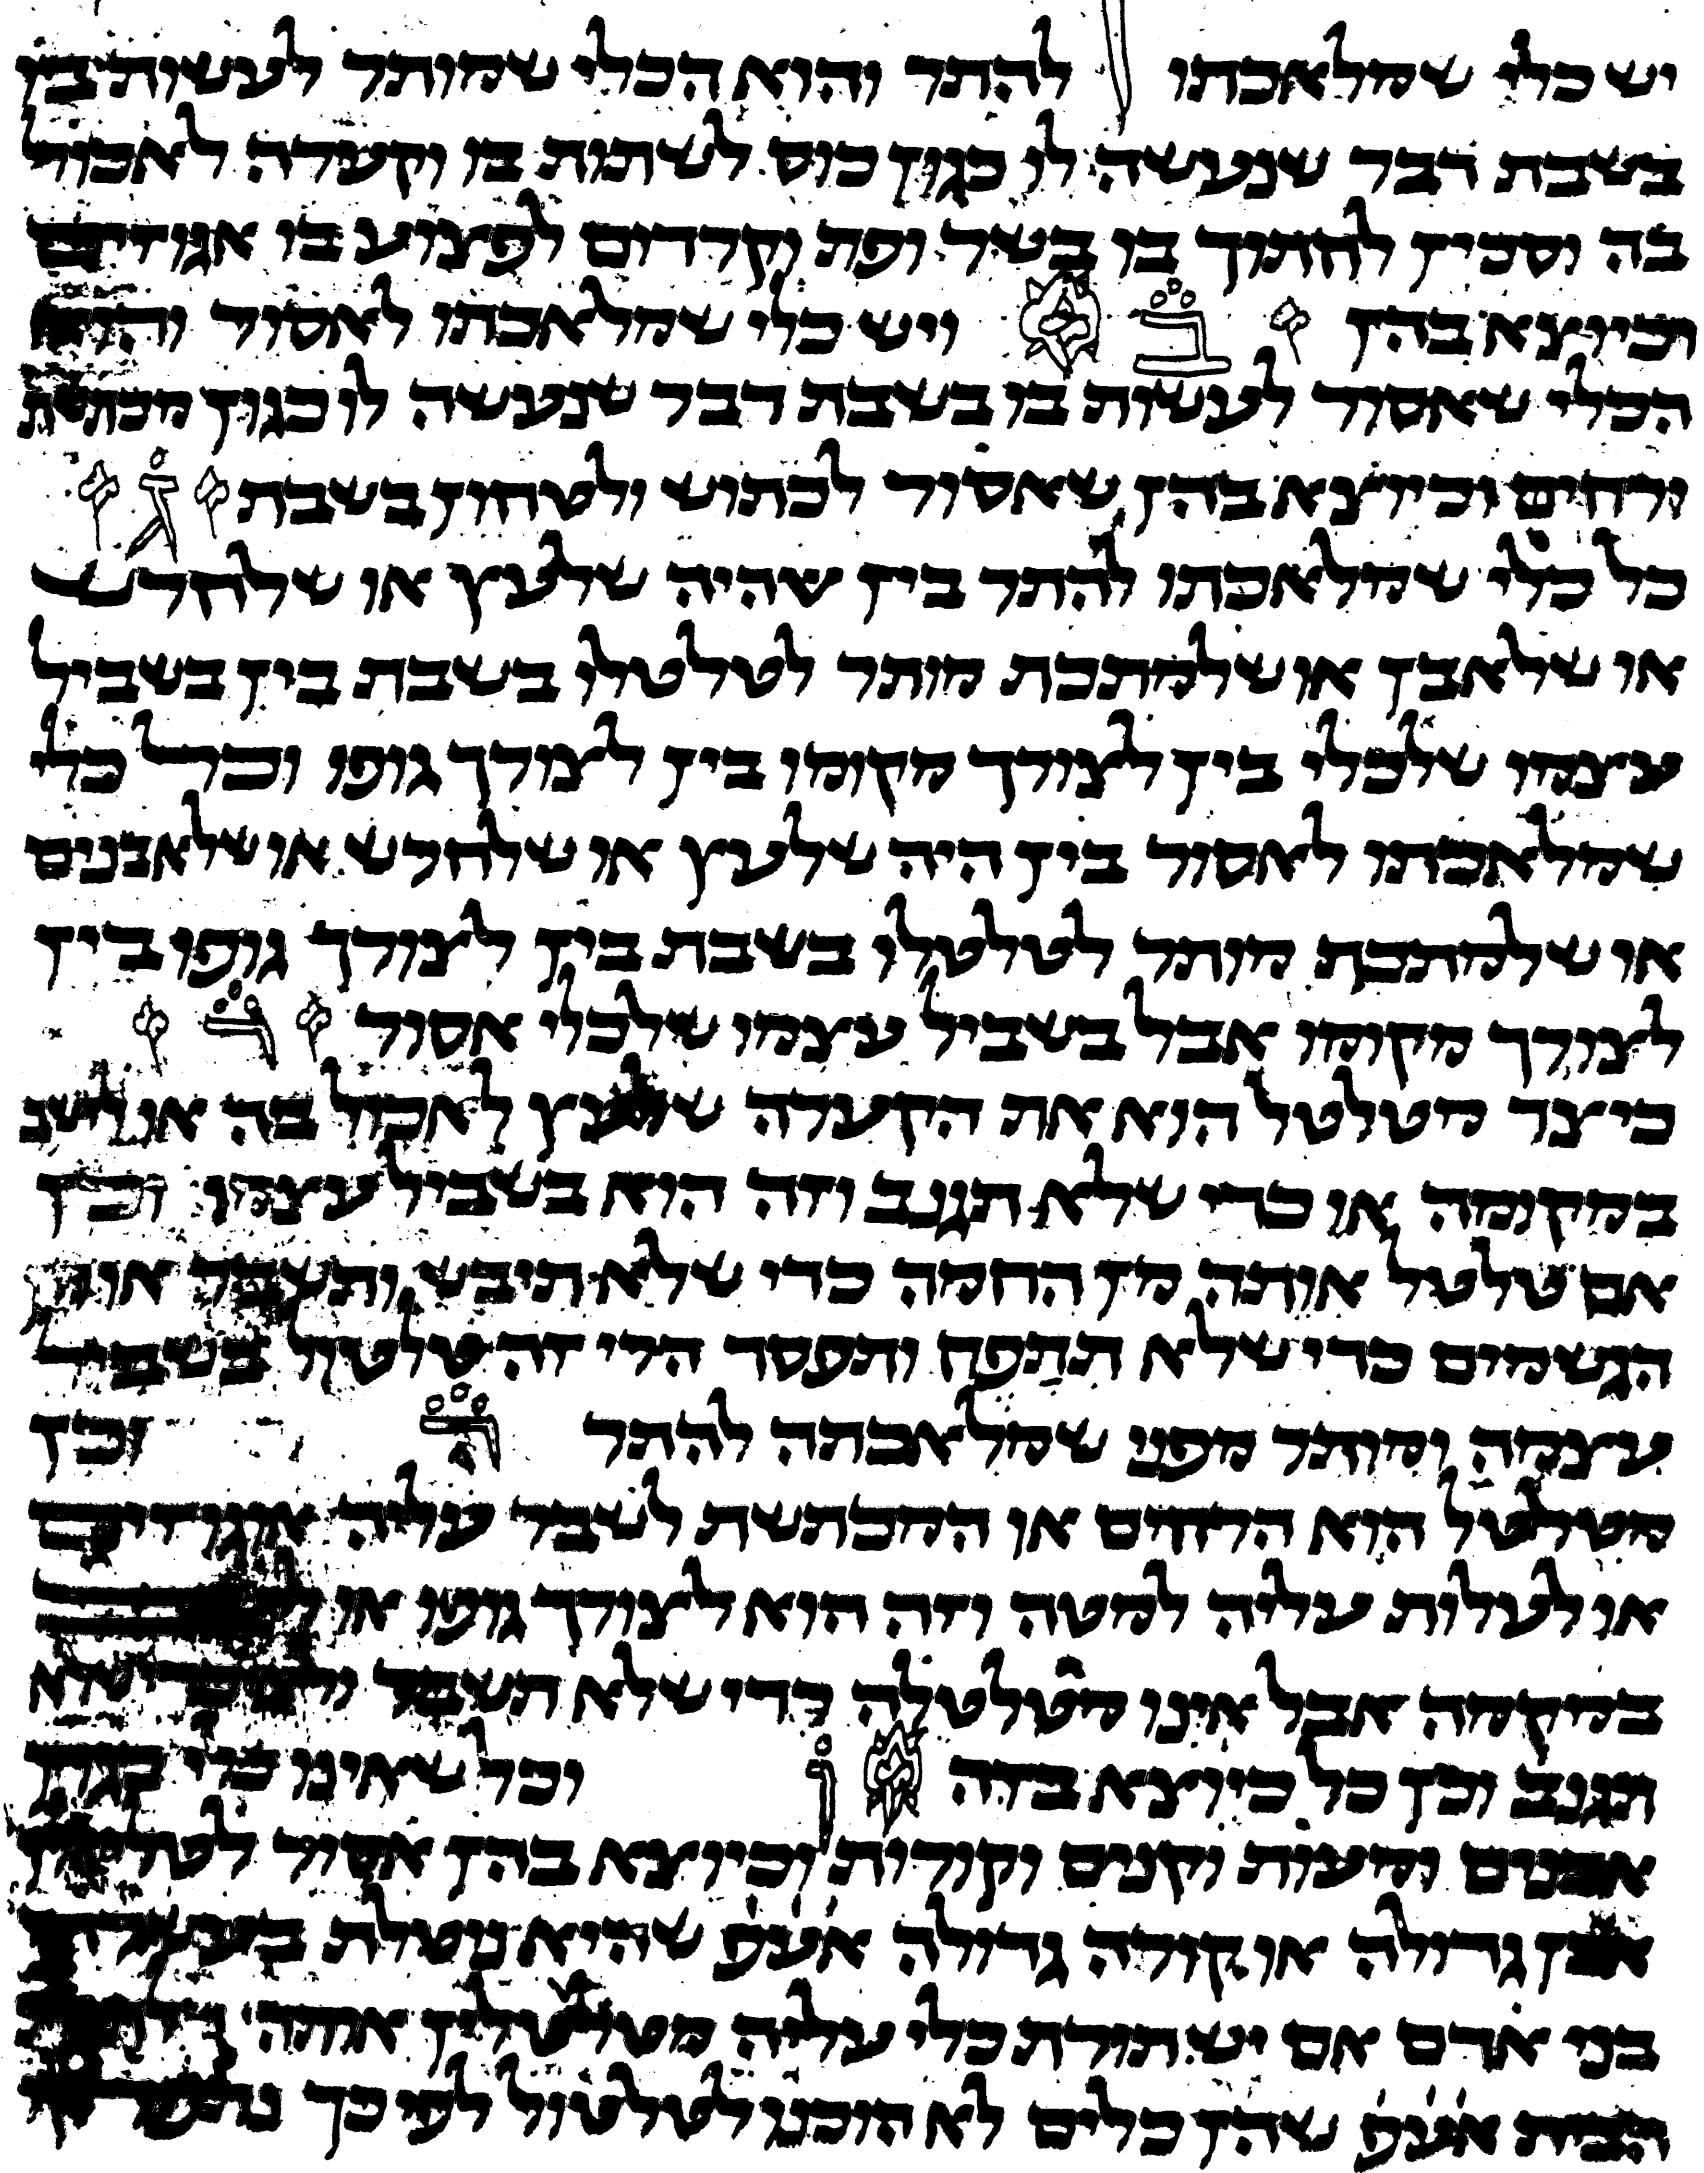 יש כלי שמלאכתו להתר והוא הכלי שמותר לעשות בו
בשבת דבר שנעשה לו כגון כוס לשתות בו וקערה לאכול
בה וסכין לחתוך בו בשר ופת וקרדום לפצוע בו אגוזים
וכיוצא בהן ב ויש כלי שמלאכתו לאסור והוא
הכלי שאסור לעשות בו בשבת דבר שנעשה לו כגון מכתשת
ורחים וכיוצא בהן שאסור לכתוש ולטחון בשבת ג
כל כלי שמלאכתו להתר בין שהיה שלעץ או שלחרש
או שלאבן או שלמתכת מותר לטלטלו בשבת בין בשביל
עצמו שלכלי בין לצורך מקומו בין לצורך גופו וכל כלי
שמלאכתו לאסור בין היה שלעץ או שלחרש או שלאבנים
או שלמתכת מותר לטלטלו בשבת בין לצורך גופו בין
לצורך מקומו אבל בשביל עצמו שלכלי אסור ד
כיצד מטלטל הוא את הקערה שלעץ לאכול בה או לישב
במקומה או כדי שלא תגנב וזה הוא בשביל עצמו וכן
אם טלטל אותה מן החמה כדי שלא תיבש ותשבר או מן
הגשמים כדי שלא תתפח ותפסד הרי זה טלטול בשביל
עצמה ומותר מפני שמלאכתה להתר ה וכן
מטלטל הוא הרחים או המכתשת לשבר עליה אגוזים
או לעלות עליה למטה וזה הוא לצורך גופו או
במקומה אבל אינו מטלטלה כדי שלא תשבר ולא כדי שלא
תגנב וכן כל כיוצא בזה ו וכל שאינו כלי כגון
אבנים ומעות וקנים וקורות וכיוצא בהן אסור לטלטלן
אבן גדולה או קורה גדולה אעפ שהיא נטלת בעשרה
בני אדם אם יש תורת כלי עליה מטלטלין אותה דלתות
הבית אעפ שהן כלים לא הוכנו לטלטול לפיכך